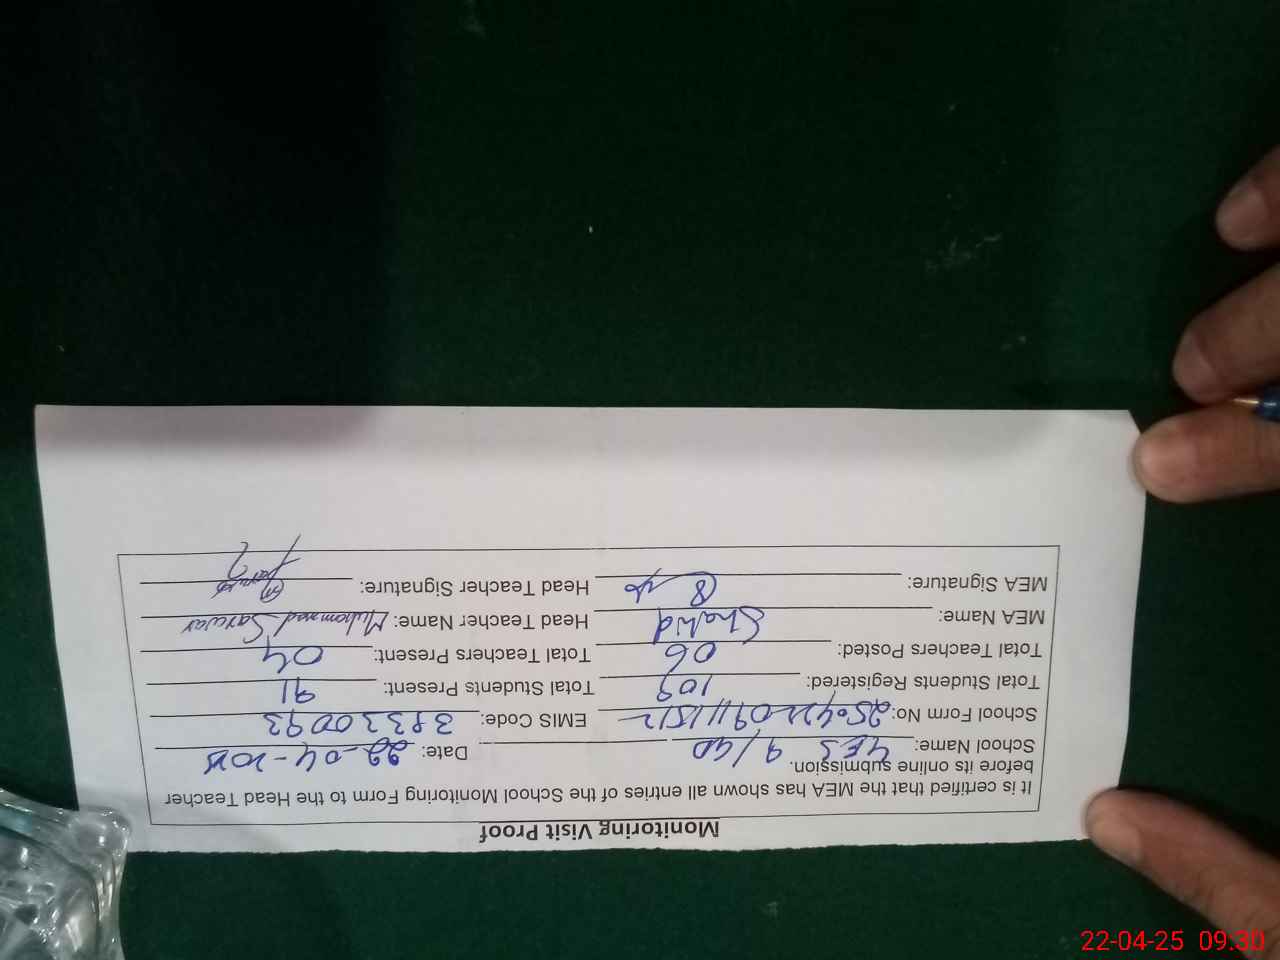 Monitoring Visit Proof
It is certified that the MEA has shown all entries of the School Monitoring Form to the Head Teacher
before its online submission.
School Name: 9/4D Date: 22-04-2025
School Form No: EMIS Code: 38330093
Total Students Registered: 109 Total Students Present: 91
Total Teachers Posted: 06 Total Teachers Present: 04
MEA Name: Shahid Head Teacher Name: Muhammad Sarwar
MEA Signature: Head Teacher Signature:
22-04-25 09:30